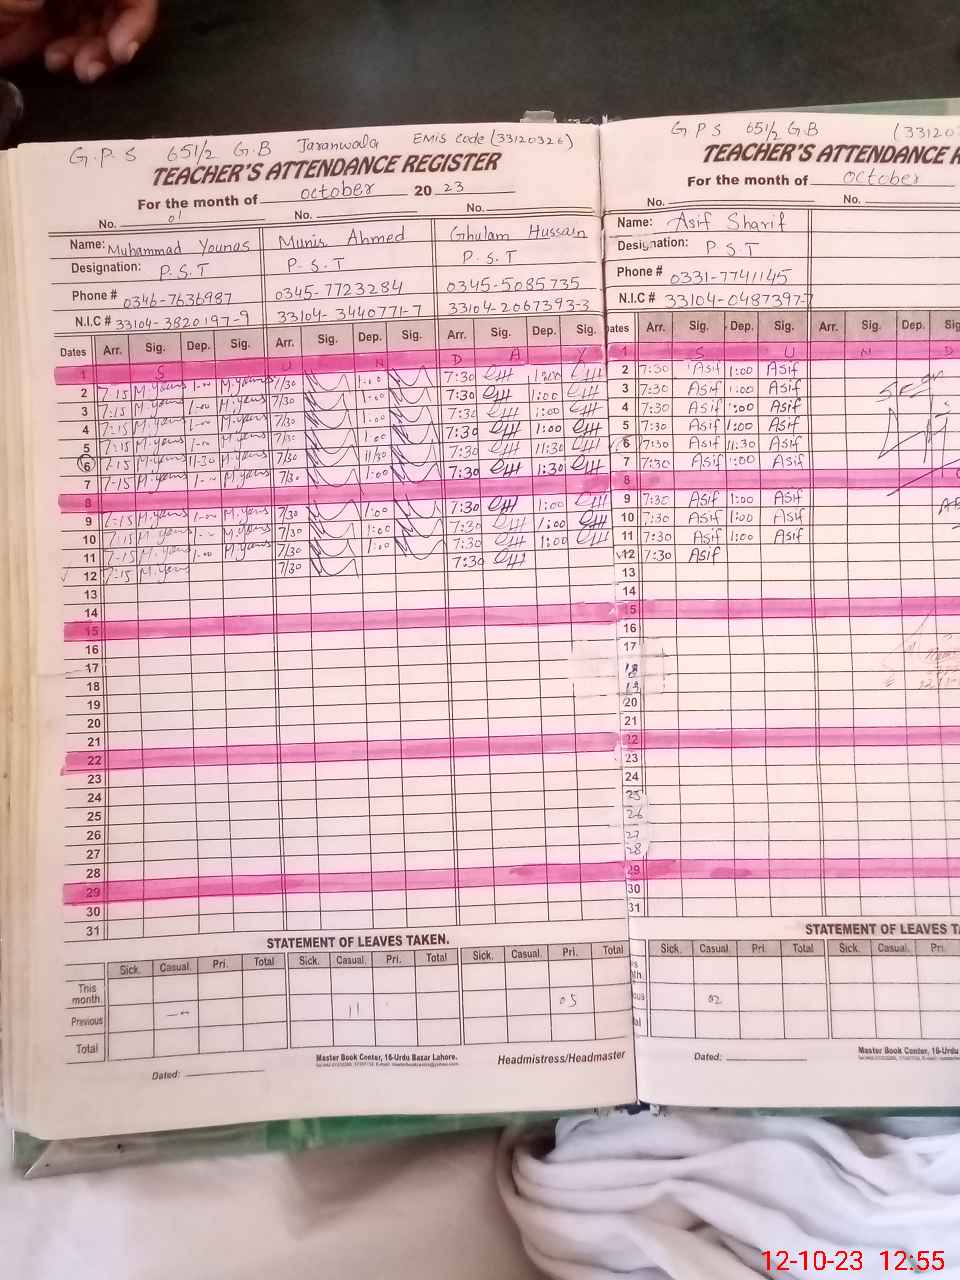 G.P.S 651/2 G.B Jaranwala EMIS Code (33120326)
TEACHER'S ATTENDANCE REGISTER
For the month of october 20 23
No. 01 No. No.
Name: Muhammad Younas Munir Ahmed Ghulam Hussain
Designation: P.S.T P.S.T P.S.T
Phone # 0346-7636987 0345-7723284 0345-5085735
N.I.C # 33104-3820197-9 33104-3440771-7 33104-2067393-3
Dates Arr. Sig. Dep. Sig. Arr. Sig. Dep. Sig. Arr. Sig. Dep. Sig.
1 S U N D A Y
2 7:15 M.younas 1-00 M.younas 7/30 1:00 7:30 1:00
3 7:15 M.younas 1-00 M.younas 7/30 1:00 7:30 1:00
4 7:15 M.younas 1-00 M.younas 7/30 1:00 7:30 1:00
5 7:15 M.younas 1-00 M.younas 7/30 1:00 7:30 1:00
6 7:15 M.younas 11-30 M.younas 7/30 11/30 7:30 11:30
7 7:15 M.younas 1-00 M.younas 7/30 1:00 7:30 1:30
8
9 7:15 M.younas 1-00 M.younas 7/30 1:00 7:30 1:00
10 7:15 M.younas 1-00 M.younas 7/30 1:00 7:30 1:00
11 7:15 M.younas 1-00 M.younas 7/30 1:00 7:30 1:00
12 7:15 M.younas 7/30 7:30
13
14
15
16
17
18
19
20
21
22
23
24
25
26
27
28
29
30
31
STATEMENT OF LEAVES TAKEN.
Sick. Casual. Pri. Total Sick. Casual. Pri. Total Sick. Casual. Pri. Total
This month.
Previous 11 05
Total
Master Book Center, 16-Urdu Bazar Lahore.
Headmistress/Headmaster
Dated:
G P S 651/2 G.B (33120
TEACHER'S ATTENDANCE R
For the month of October
No. No.
Name: Asif Sharif
Designation: P S T
Phone # 0331-7741145
N.I.C # 33104-0487397-7
Dates Arr. Sig. Dep. Sig. Arr. Sig. Dep. Sig
1 S U N D
2 7:30 Asif 1:00 Asif
3 7:30 Asif 1:00 Asif
4 7:30 Asif 1:00 Asif
5 7:30 Asif 1:00 Asif
6 7:30 Asif 11:30 Asif
7 7:30 Asif 1:00 Asif
8
9 7:30 Asif 1:00 Asif
10 7:30 Asif 1:00 Asif
11 7:30 Asif 1:00 Asif
12 7:30 Asif
13
14
15
16
17
18
19
20
21
22
23
24
25
26
27
28
29
30
31
STATEMENT OF LEAVES TA
Sick. Casual. Pri. Total Sick. Casual. Pri.
02
Dated:
Master Book Center, 16-Urdu B
12-10-23 12:55